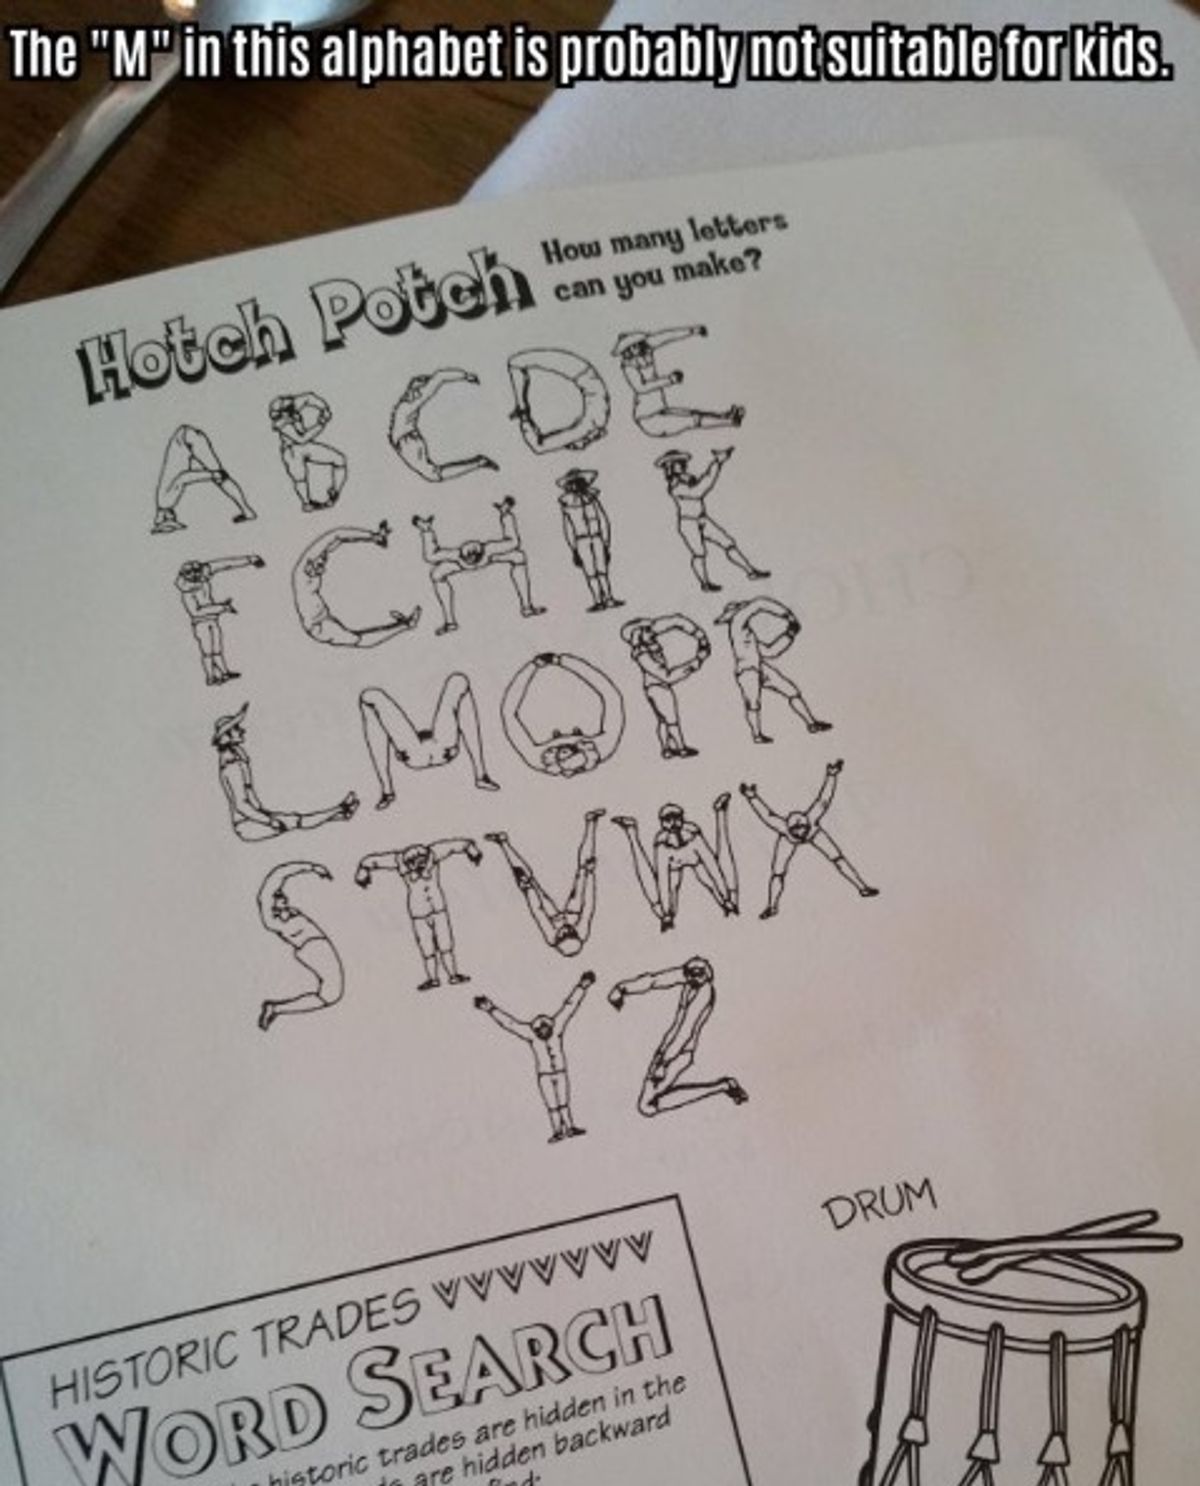 The "M" in this alphabet is probably not suitable for kids.
Hotch Potch
How many letters
can you make?
A B C D E
F G H I K
L M O P R
S T V W X
Y Z
DRUM
HISTORIC TRADES
WORD SEARCH
historic trades are hidden in the
are hidden backward